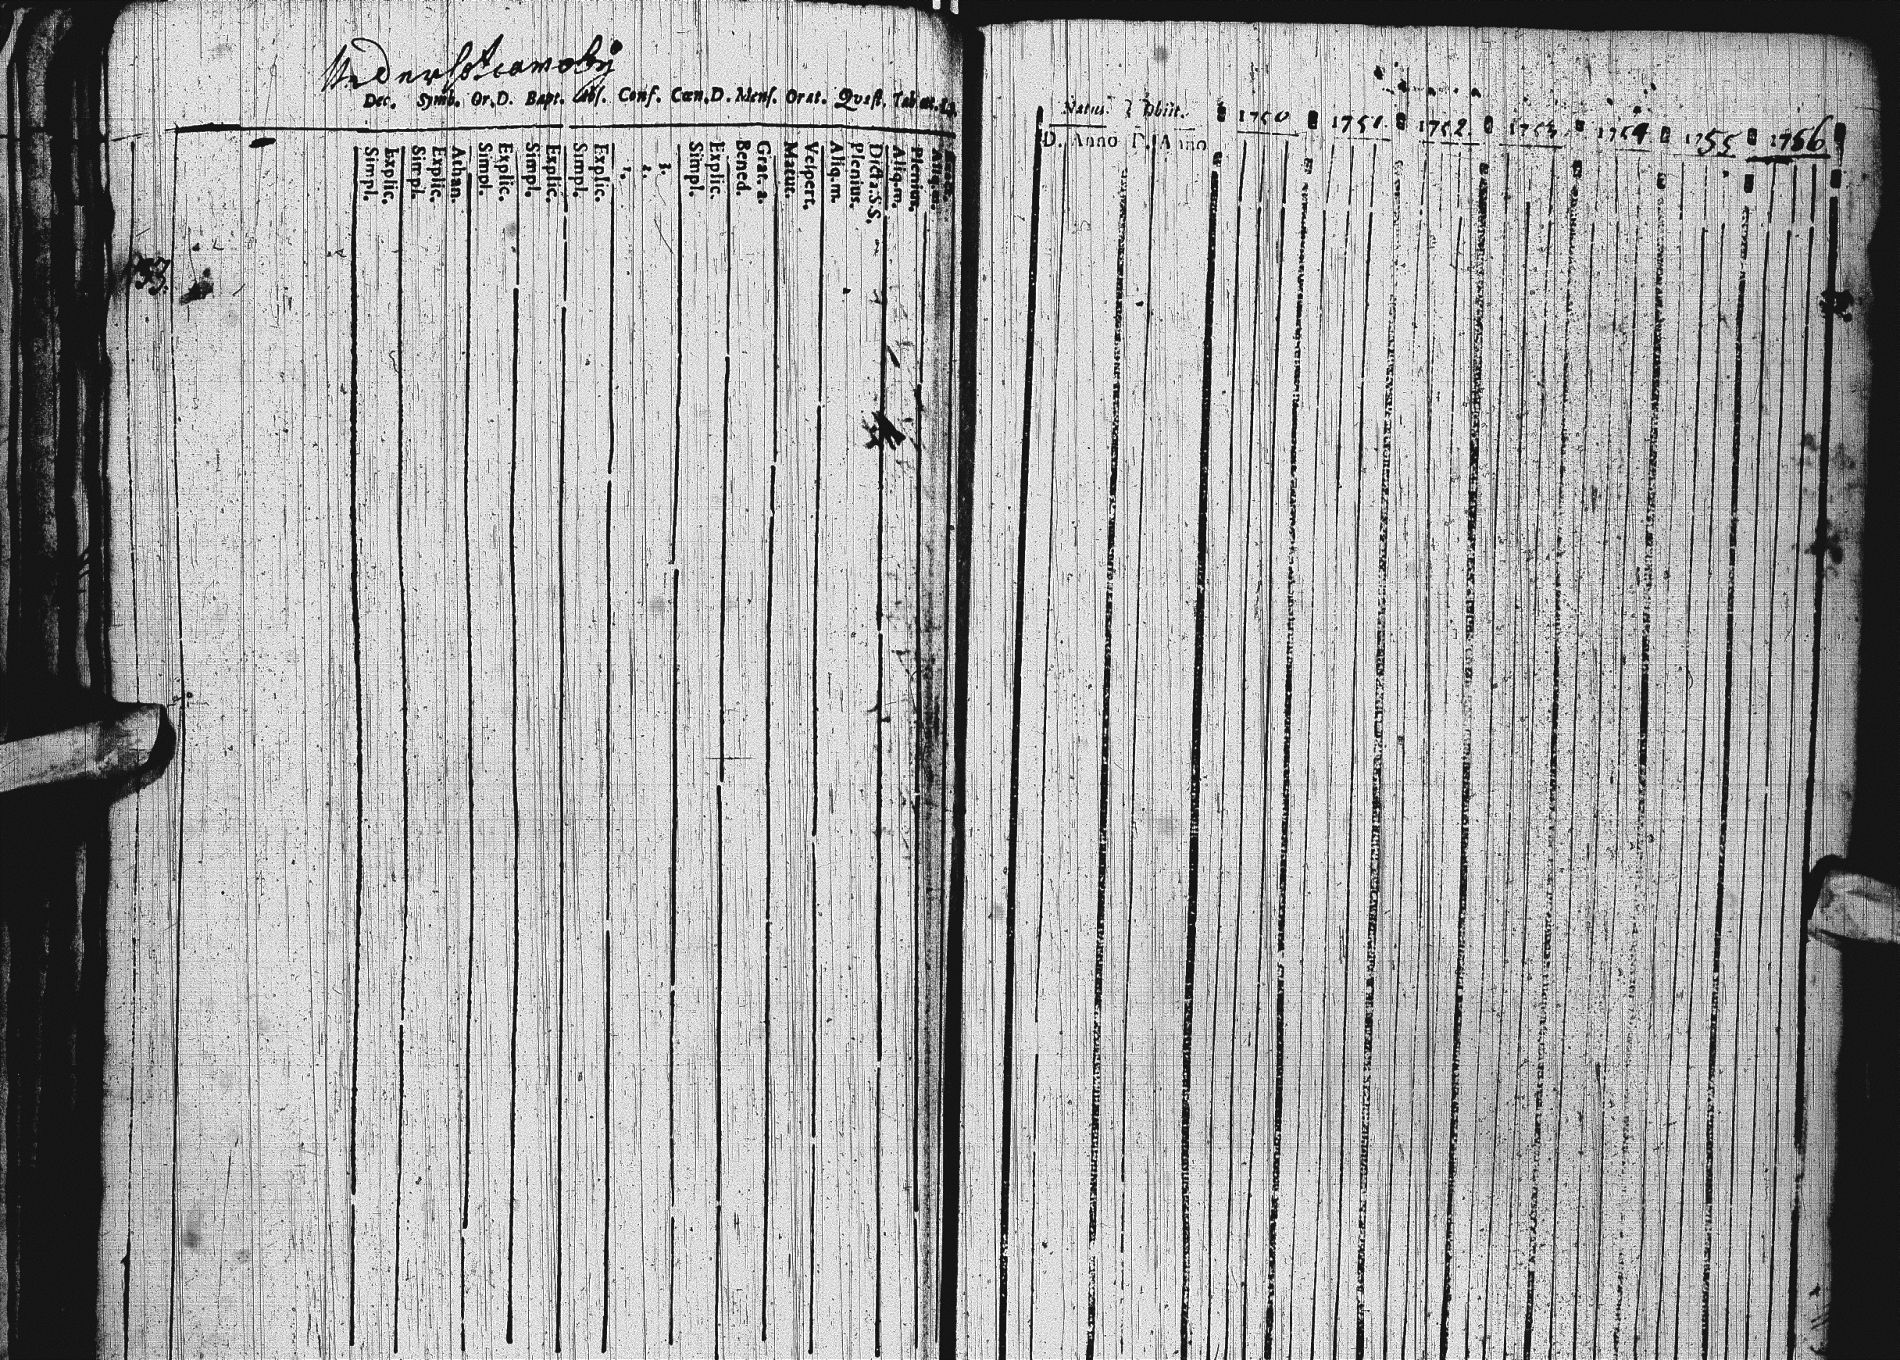 Dec. Symb. Or. D. Bapt. Abs. Conf. Cœn. D. Mens. Orat. Quæst.
Simpl.
Explic.
Simpl.
Explic.
Athan.
Simpl.
Explic.
Simpl.
Explic.
Simpl.
Explic.
1.
2.
3.
Simpl.
Explic.
Bened.
Grat. a.
Matut.
Vespert.
Aliq.m.
Plenius.
Dicta.S.S.
Aliq.m.
Plenium.
Natus. Obiit.
D. Anno D. Anno
1750 1751. 1752. 1753. 1754 1755 1756